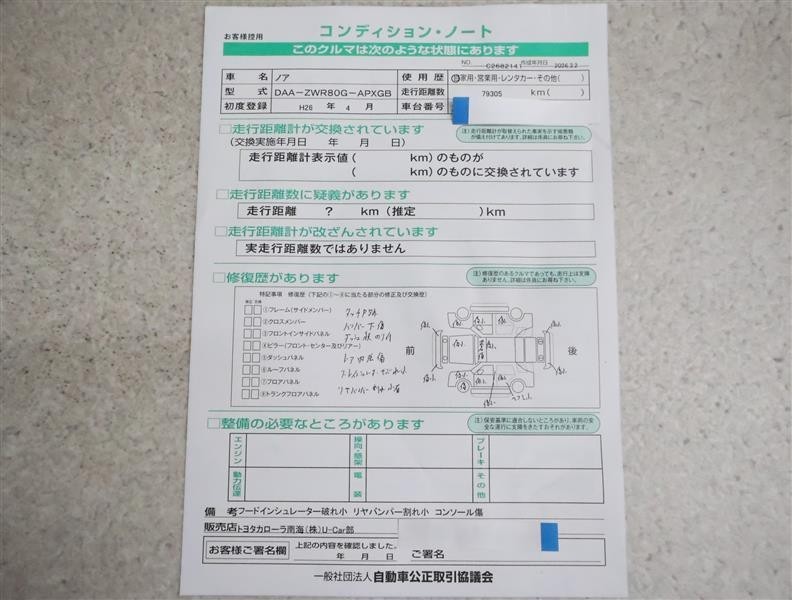 お客様控用
コンディション・ノート
このクルマは次のような状態にあります
NO. C2682141 作成年月日 2026.3.2
車名 ノア 使用歴 自家用・営業用・レンタカー・その他( )
型式 DAA-ZWR80G-APXGB 走行距離数 79305 km( )
初度登録 H26 年 4 月 車台番号
□走行距離計が交換されています
(交換実施年月日 年 月 日)
注)走行距離計が取替えられた事実を示す記録簿が備え付けてあります。詳細は係員にお尋ね下さい。
走行距離計表示値( km)のものが
( km)のものに交換されています
□走行距離数に疑義があります
走行距離 ? km(推定 )km
□走行距離計が改ざんされています
実走行距離数ではありません
□修復歴があります
注)修復歴のあるクルマであっても、走行上は支障ありません。詳細は係員にお尋ね下さい。
特記事項 修復歴(下記の①~⑧に当たる部分の修正及び交換歴)
修正 交換
①フレーム(サイドメンバー)
②クロスメンバー
③フロントインサイドパネル
④ピラー(フロント・センター及びリアー)
⑤ダッシュパネル
⑥ルーフパネル
⑦フロアパネル
⑧トランクフロアパネル
バンパー下傷
ドア内張傷
リヤバンパー割れ小
前 後
□整備の必要なところがあります
注)保安基準に適合しないところがあり、車両の安全な運行に支障をきたすおそれがあります。
エンジン 操向・懸架 ブレーキ
動力伝達 電装 その他
備考 フードインシュレーター破れ小 リヤバンパー割れ小 コンソール傷
販売店 トヨタカローラ南海(株)U-Car部
お客様ご署名欄 上記の内容を確認しました。
年 月 日 ご署名
一般社団法人 自動車公正取引協議会